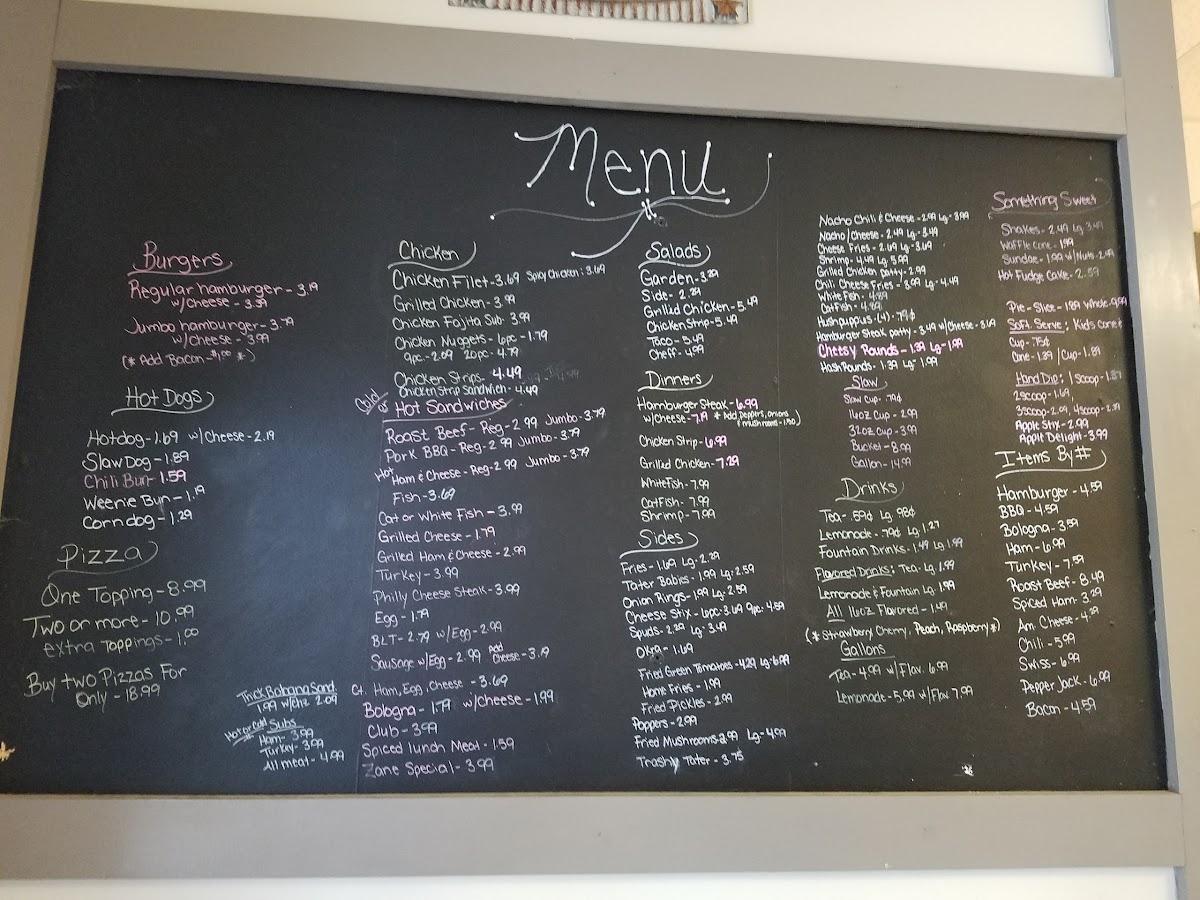 Menu
Burgers
Regular hamburger - 3.19
w/cheese - 3.39
Jumbo hamburger - 3.79
w/cheese - 3.99
(* Add Bacon - $1.00 *)
Hot Dogs
Hotdog - 1.69 w/cheese - 2.19
Slaw Dog - 1.89
Chili Bun - 1.59
Weenie Bun - 1.19
Corndog - 1.29
Pizza
One Topping - 8.99
Two or more - 10.99
extra toppings - 1.00
Buy two Pizzas For
Only - 18.99
Thick Bologna Sand
1.99 w/chz 2.09
Hot or Cold Subs
Ham - 3.99
Turkey - 3.99
All meat - 4.99
Chicken
Chicken Filet - 3.69 Spicy Chicken: 3.69
Grilled Chicken - 3.99
Chicken Fajita Sub - 3.99
Chicken Nuggets - 6pc - 1.79
9pc - 2.09 20pc - 4.79
Chicken Strips - 4.49
Chicken Strip Sandwich - 4.49
Cold or Hot Sandwiches
Roast Beef - Reg - 2.99 Jumbo - 3.79
Pork BBQ - Reg - 2.99 Jumbo - 3.79
Hot Ham & Cheese - Reg - 2.99 Jumbo - 3.79
Fish - 3.69
Cat or White Fish - 3.99
Grilled Cheese - 1.79
Grilled Ham & Cheese - 2.99
Turkey - 3.99
Philly Cheese Steak - 3.99
Egg - 1.79
BLT - 2.79 w/Egg - 2.99
Sausage w/Egg - 2.99 Add Cheese - 3.19
Ct. Ham, Egg, Cheese - 3.69
Bologna - 1.79 w/cheese - 1.99
Club - 3.99
Spiced lunch Meat - 1.59
Zane Special - 3.99
Salads
Garden - 3.29
Side - 2.29
Grilled Chicken - 5.49
Chicken Strip - 5.49
Taco - 5.49
Cheff - 4.99
Dinners
Hamburger Steak - 6.99
w/cheese - 7.19 * Add peppers, onions
& mushroom - 1.50)
Chicken Strip - 6.99
Grilled Chicken - 7.29
White Fish - 7.99
Cat Fish - 7.99
Shrimp - 7.99
Sides
Fries - 1.69 Lg - 2.29
Tater Babies - 1.99 Lg - 2.59
Onion Rings - 1.99 Lg - 2.59
Cheese Stix - 6pc: 3.69 9pc - 4.59
Spuds - 2.29 Lg - 3.49
Okra - 1.69
Fried Green Tomatoes - 4.29 Lg - 6.99
Home Fries - 1.99
Fried Pickles - 2.99
Poppers - 2.99
Fried Mushrooms 2.99 Lg - 4.99
Trashy Tater - 3.75
Nacho Chili & Cheese - 2.99 Lg - 3.99
Nacho/Cheese - 2.49 Lg - 3.49
Cheese Fries - 2.69 Lg - 3.69
Shrimp - 4.49 Lg 5.99
Grilled Chicken patty - 2.99
Chili Cheese Fries - 3.99 Lg - 4.49
White Fish - 4.89
Cat Fish - 4.89
Hushpuppies (4) - 79¢
Hamburger Steak patty - 3.49 w/Cheese - 3.69
Cheesy Rounds - 1.39 Lg - 1.99
Hash Rounds - 1.39 Lg - 1.99
Slaw
Slaw Cup - 79¢
16oz Cup - 2.99
32oz Cup - 3.99
Bucket - 8.99
Gallon - 14.99
Drinks
Tea - .59¢ Lg. 98¢
Lemonade - 79¢ Lg. 1.27
Fountain Drinks - 1.49 Lg 1.99
Flavored Drinks: Tea - Lg. 1.99
Lemonade & Fountain Lg. 1.99
All 16oz Flavored - 1.49
(* Strawberry, Cherry, Peach, Raspberry *)
Gallons
Tea - 4.99 w/Flav. 6.99
Lemonade - 5.99 w/Flav 7.99
Something Sweet
Shakes - 2.49 Lg. 3.49
Waffle Cone - 1.99
Sundae - 1.99 w/Nuts - 2.49
Hot Fudge Cake - 2.59
Pie - Slice - 1.89 Whole - 9.99
Soft Serve: Kids Cone
Cup - .75¢
Cone - 1.39 / Cup - 1.89
Hand Dip: 1 scoop -
2 scoop - 1.69,
3 scoop - 2.09, 4 scoop -
Apple Stix - 2.99
Apple Delight - 3.99
Items By #
Hamburger - 4.59
BBQ - 4.59
Bologna - 3.59
Ham - 6.99
Turkey - 7.59
Roast Beef - 8.49
Spiced Ham - 3.29
Am. Cheese - 4.29
Chili - 5.99
Swiss - 6.99
Pepper Jack - 6.99
Bacon - 4.59